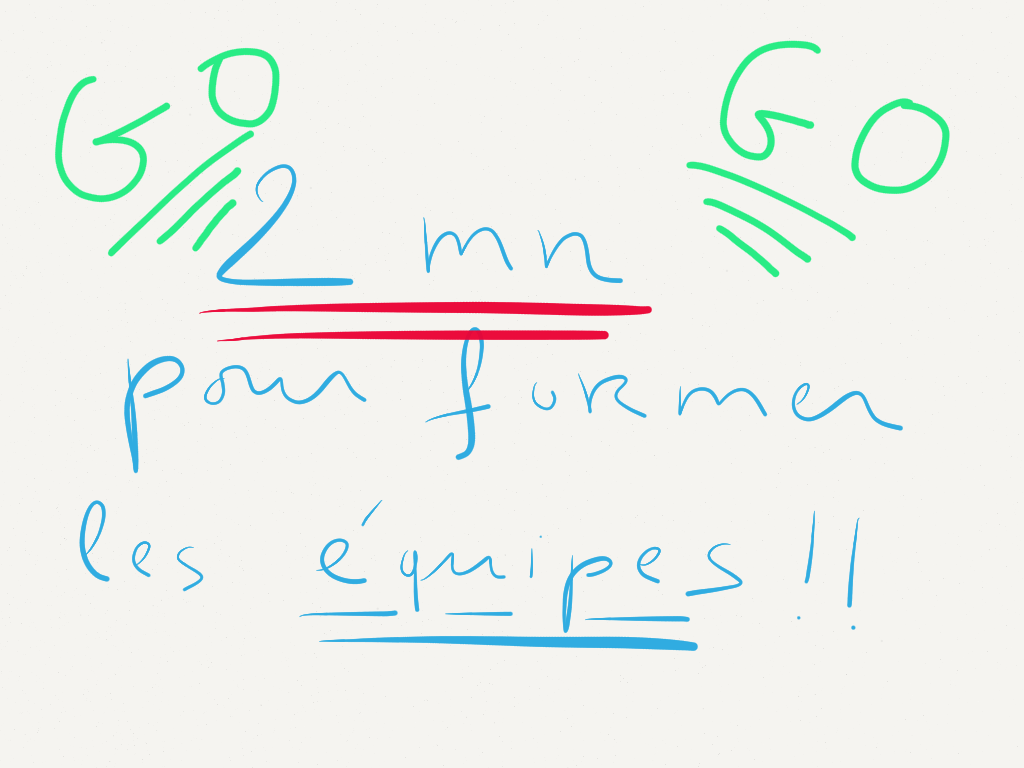 GO GO
2 mn
pour former
les équipes !!